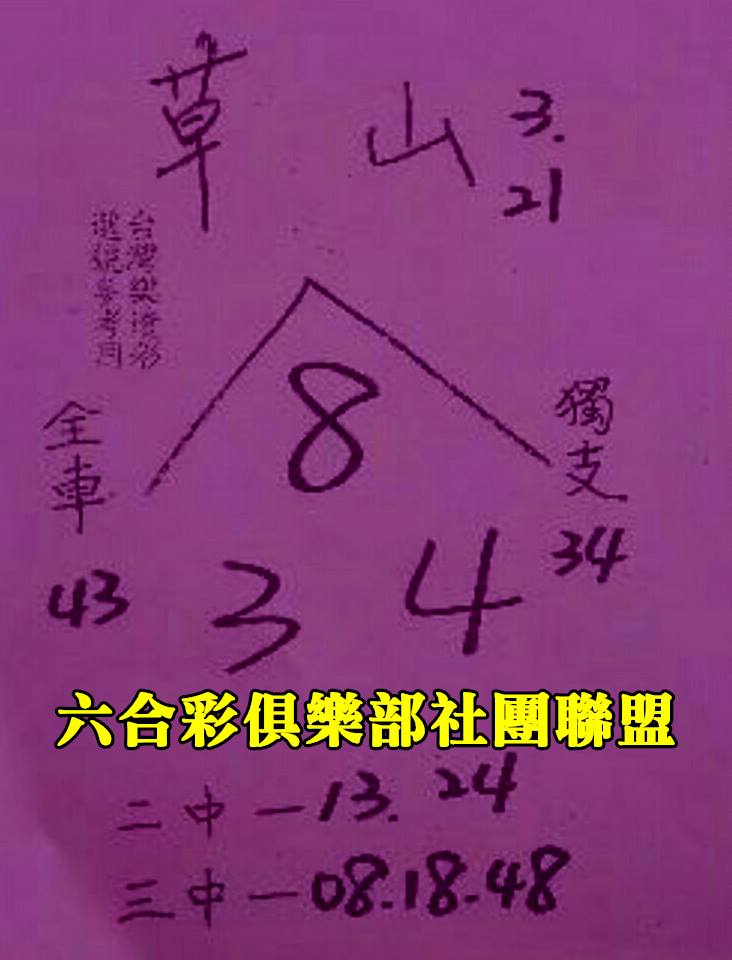 草山 3.
21
台灣樂透彩
選號參考用
8
全車
獨支
43
3 4
34
六合彩俱樂部社團聯盟
二中—13. 24
三中—08.18.48